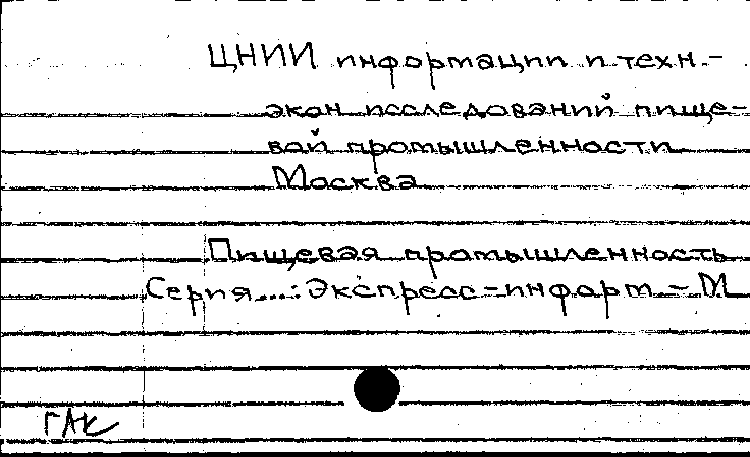 ЦНИИ информации и техн.-
экон. исследований пище-
вой промышленности
Москва
Пищевая промышленность
Серия...: Экспресс-информ. - М
ГАК